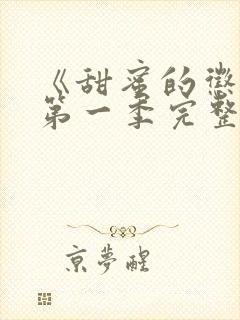 《甜蜜的惩
第一季完整
京夢醒